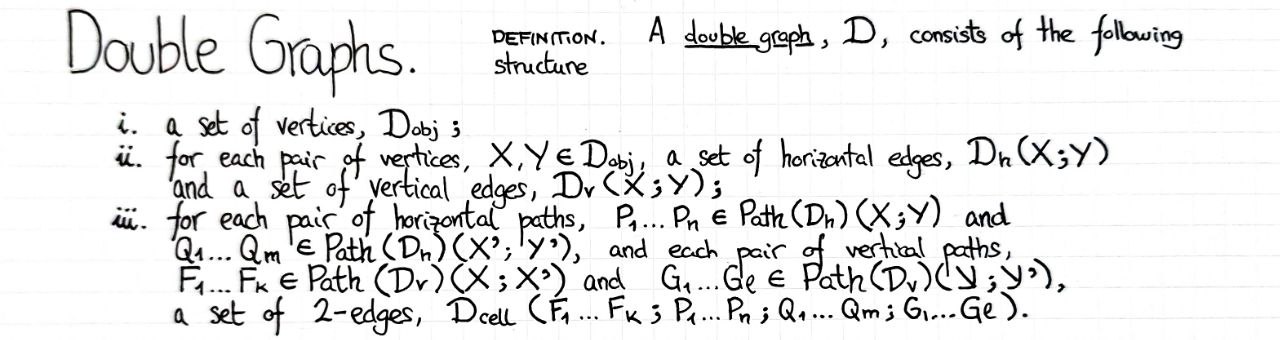 Double Graphs.
DEFINITION. A double graph, D, consists of the following
structure
i. a set of vertices, Dobj ;
ii. for each pair of vertices, X,Y ∈ Dobj, a set of horizontal edges, Dh(X;Y)
and a set of vertical edges, Dv(X;Y);
iii. for each pair of horizontal paths, P₁... Pn ∈ Path(Dh)(X;Y) and
Q₁... Qm ∈ Path(Dh)(X';Y'), and each pair of vertical paths,
F₁... Fk ∈ Path(Dv)(X;X') and G₁...Gl ∈ Path(Dv)(Y;Y'),
a set of 2-edges, Dcell (F₁... Fk; P₁... Pn; Q₁... Qm; G₁...Gl).